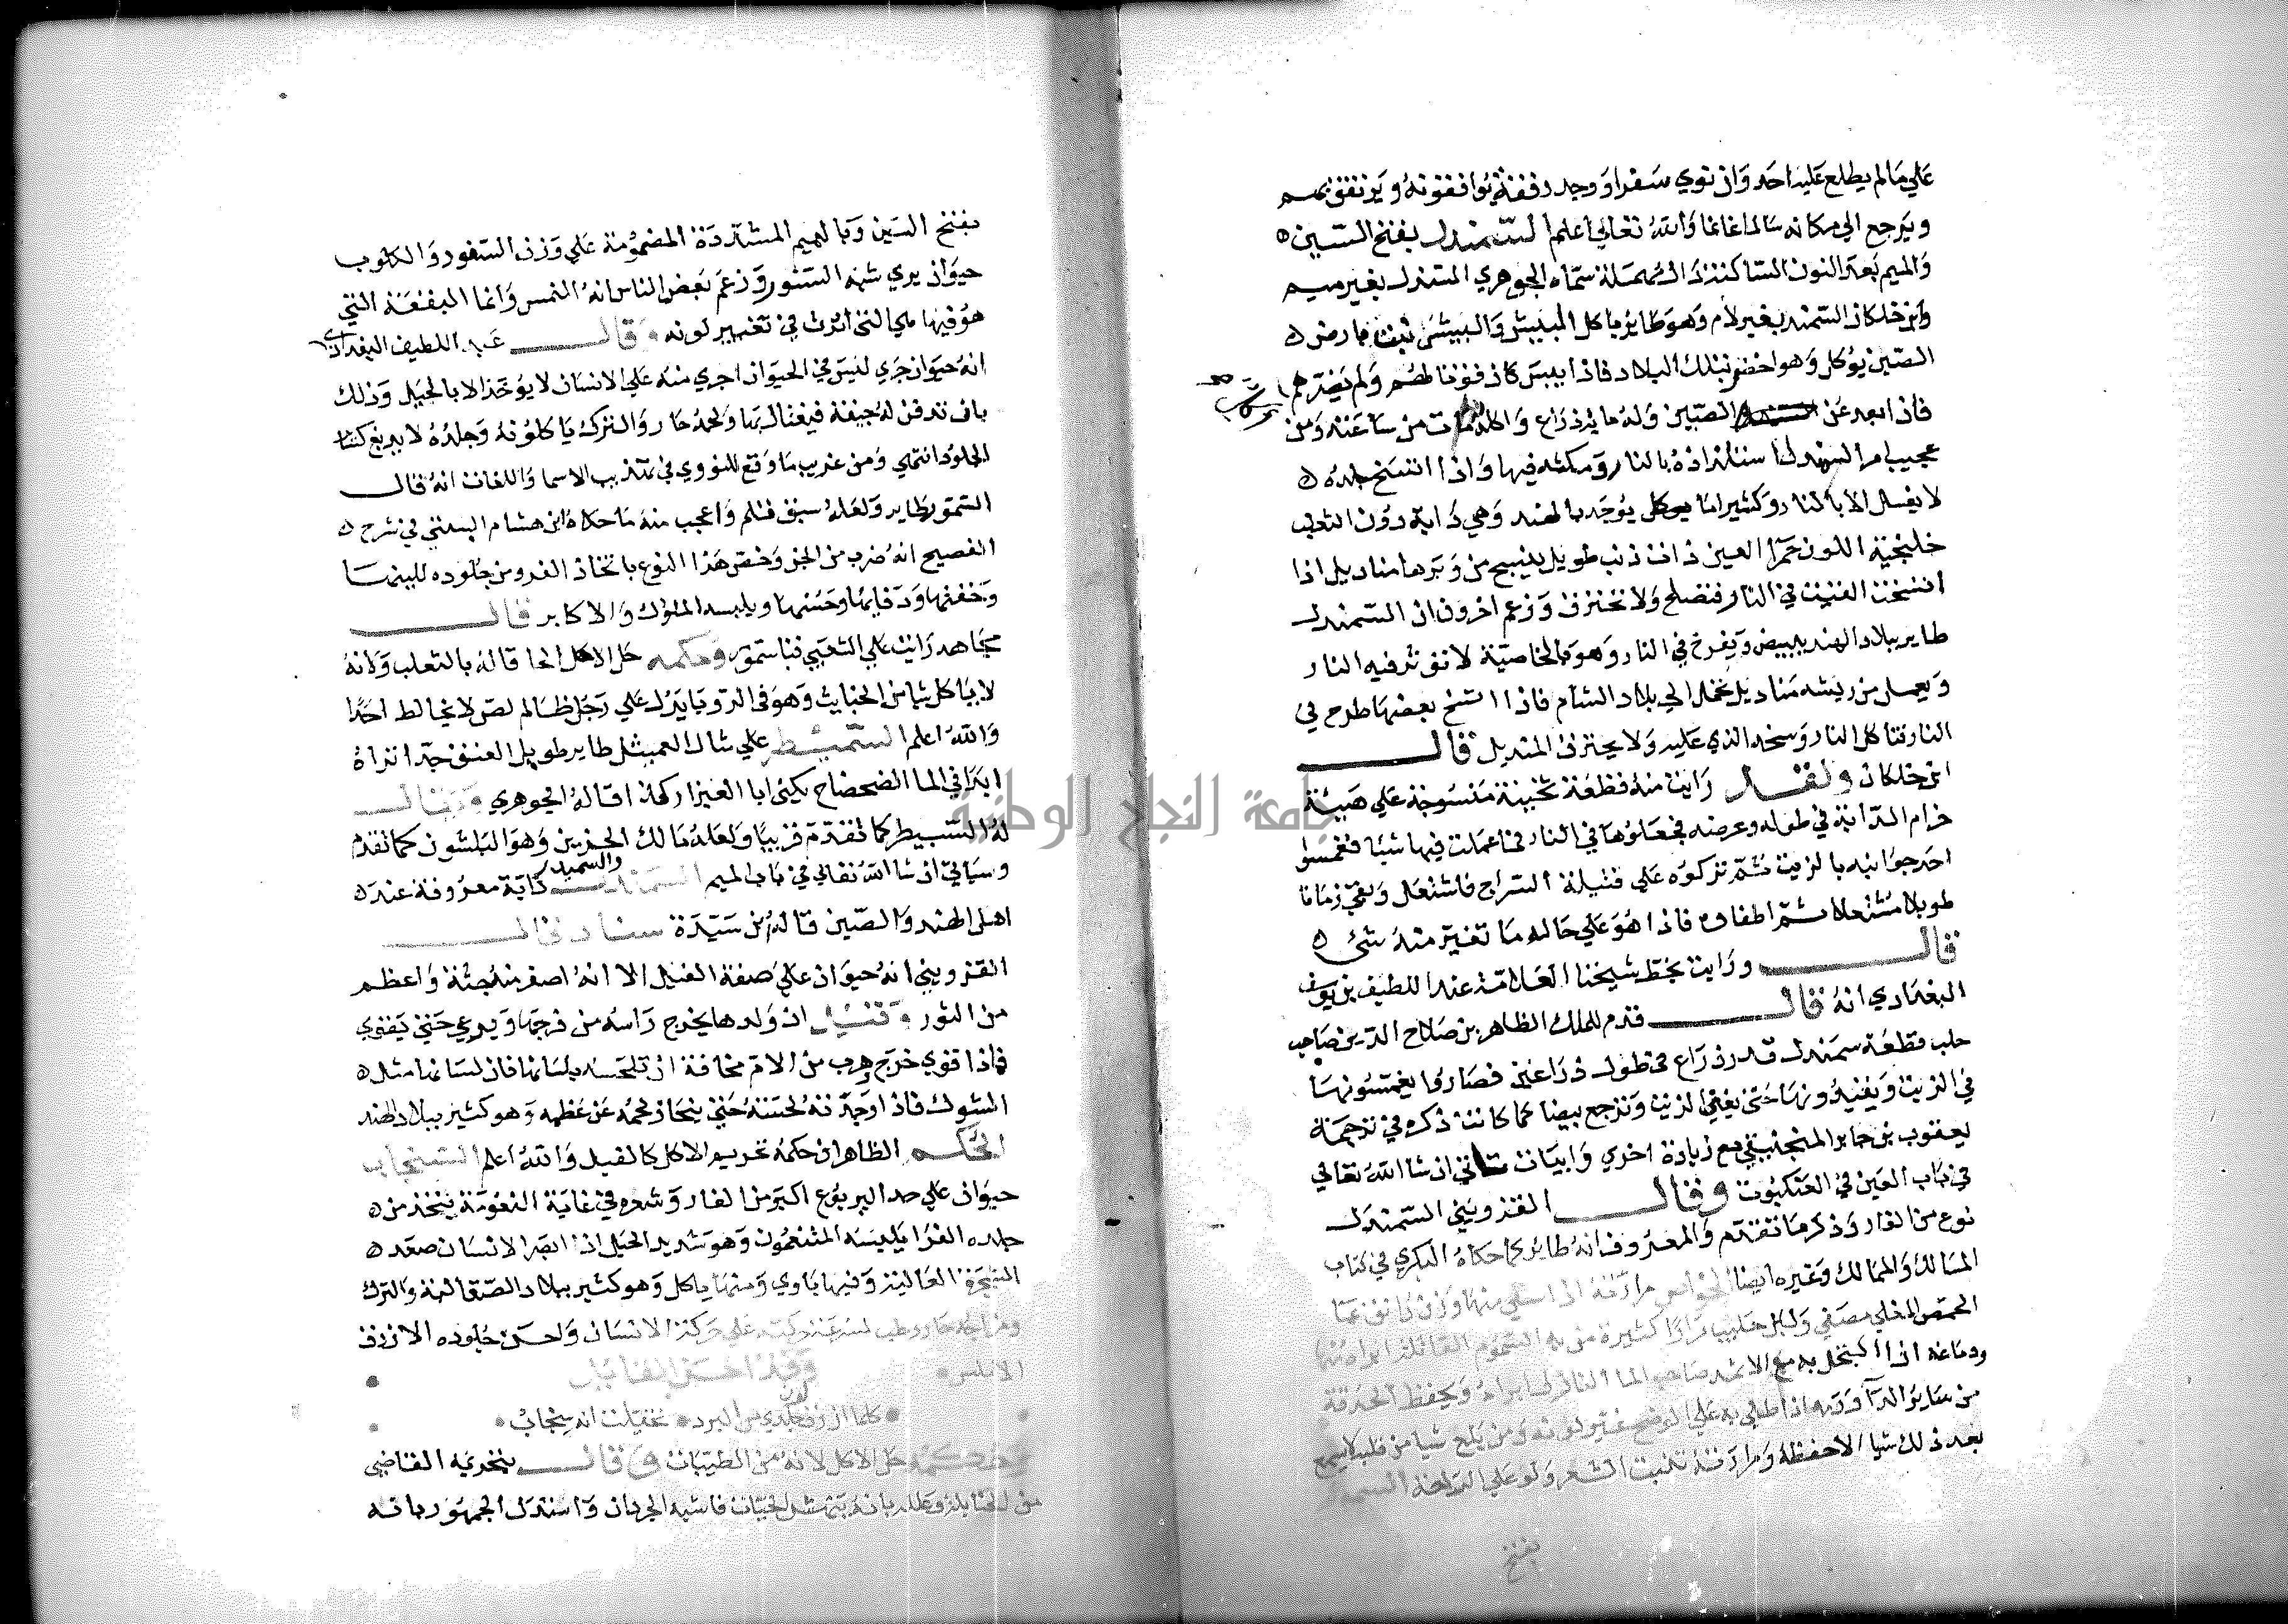 علي ما لم يطلع عليه احد وان نوي سفرا وجد رفقة يوافقونه ويرتفق بهم
ويرجع الي مكانه سالما غانما والله تعالي اعلم السمندل بفتح السين
والميم بعد النون الساكنة دال مهملة سماه الجوهري السندل بغير ميم
وابن خلكان السمند بغير لام وهو طاير ياكل البيش والبيش نبت بارض
الصين يوكل وهو اخضر بتلك البلاد فاذا يبس كان قوتا لهم ولم يضرهم
فاذا بعد عن الصين ولو ماية ذراع واكله مات من ساعته ومن
عجيب امر السمندل استلذاذه بالنار ومكثه فيها واذا اتسخ جلده
لا يغسل الا بالنار وكثيرا ما يوجد بالهند وهي دابة دون الثعلب
خلنجية اللون حمرا العين ذات ذنب طويل ينسج من وبرها مناديل اذا
اتسخت القيت في النار فتصلح ولا تحترق وزعم اخرون ان السمندل
طاير ببلاد الهند يبيض ويفرخ في النار وهو بالخاصية لا توثر فيه النار
ويعمل من ريشه مناديل تحمل الي بلاد الشام فاذا اتسخ بعضها طرح في
النار فتاكل النار وسخه الذي عليه ولا يحترق المنديل قال
ابن خلكان ولقد رايت منه قطعة ثخينة منسوجة علي هيئة
حزام الدابة في طوله وعرضه فجعلوها في النار فما عملت فيها شيا فغمسوا
احد جوانبه بالزيت ثم تركوه علي فتيلة السراج فاشتعل وبقي زمانا
طويلا مشتعلا ثم اطفاوه فاذا هو علي حاله ما تغير منه شئ
قال ورايت بخط شيخنا العلامة عبد اللطيف بن يوسف
البغدادي انه قال قدم للملك الظاهر بن صلاح الدين صاحب
حلب قطعة سمندل قدر ذراع في طول ذراعين فصاروا يغمسونها
في الزيت ويقيدونها حتي يفني الزيت وترجع بيضا كما كانت ذكره في ترجمة
يعقوب بن جابر المنجنيقي مع زيادة اخري وابيات تاتي ان شا الله تعالي
في باب العين في العنكبوت وقال القزويني السمندل
نوع من الفار وذكر ما تقدم والمعروف انه طاير كما حكاه البكري في كتاب
المسالك والممالك وغيره ايضا الخواص مرارته اذا سقي منها وزن دانق بما
الحمص المغلي مصفي ولبن حليب مرارا كثيرة من به السموم القاتلة ابراه منها
ودماغه اذا اكتحل به مع الاثمد صاحب الما النازل ابراه ويحفظ الحدقة
من ساير الدا ودمه اذا طلي به علي الوضح غير لونه ومن بلع شيا من قلبه لا يسمع
بعد ذلك شيا الا حفظه ومرارته تنبت الشعر ولو علي الراحة السمور
بفتح
بفتح السين وبالميم المشددة المضمومة علي وزن السفود والكلوب
حيوان بري شبه السنور وزعم بعض الناس انه النمس وانما البقعة التي
هو فيها هي التي اثرت في تغيير لونه وقال عبد اللطيف البغدادي
انه حيوان جري ليس في الحيوان اجري منه علي الانسان لا يوخذ الا بالحيل وذلك
بان تدفن له جيفة فيغتال بها ولحمه حار والترك ياكلونه وجلده لا يدبغ كساير
الجلود انتهي ومن غريب ما وقع للنووي في تهذيب الاسما واللغات انه قال
السمور طاير ولعله سبق قلم واعجب منه ما حكاه ابن هشام البستي في شرح
الفصيح انه ضرب من الجن وخص هذا النوع باتخاذ الفرو من جلوده للينها
وخفتها ودفايها وحسنها ويلبسه الملوك والاكابر قال
مجاهد رايت علي الشعبي قبا سمور وحكمه حل الاكل الحاقا له بالثعلب ولانه
لا ياكل شيا من الخبايث وهو في الرويا يدل علي رجل ظالم لص لا يخالط احدا
والله اعلم السميطر علي مثال العميثل طاير طويل العنق جدا تراه
ابدا في الما الضحضاح يكني ابا العيزار كذا قاله الجوهري ويقال
له السبيطر كما تقدم قريبا ولعله مالك الحزين وهو البلشون كما تقدم
وسياتي ان شا الله تعالي في باب الميم السمندر والسميدر دابة معروفة عند
اهل الهند والصين قاله بن سيدة سناد قال
القزويني انه حيوان علي صفة الفيل الا انه اصغر منه جثة واعظم
من الثور وقيل ان ولدها يخرج راسه من فرجها ويرعي حتي يقوي
فاذا قوي خرج وهرب من الام مخافة ان تلحسه بلسانها فان لسانها مثل
الشوك فاذا وجدته لحسته حتي ينحاز لحمه عن عظمه وهو كثير ببلاد الهند
الحكم الظاهر ان حكمه تحريم الاكل كالفيل والله اعلم السنجاب
حيوان علي حد اليربوع اكبر من الفار وشعره في غاية النعومة يتخذ من
جلده الفرا يلبسه المتنعمون وهو شديد الحيل اذا ابصر الانسان صعد
الشجرة العالية وفيها ياوي ومنها ياكل وهو كثير ببلاد الصقالبة والترك
ومزاجه حار رطب لسرعة حركته علي حركة الانسان واحسن جلوده الازرق
الاملس وقد احسن القايل
كلما ازرق لون جلدي من البرد تخيلت انه سنجاب
وحكمه حل الاكل لانه من الطيبات وقال بتحريمه القاضي
من الحنابلة وعلله بانه ينهش الحيات فاشبه الجرذان واستدل الجمهور بانه
جامعة النجاح الوطنية